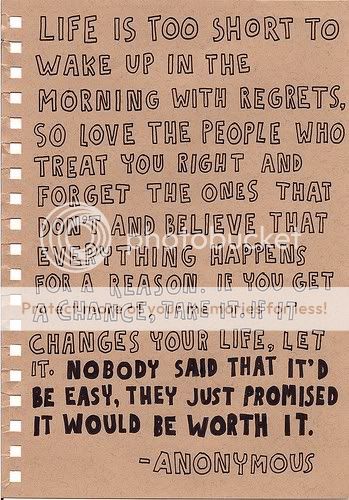 LIFE IS TOO SHORT TO
WAKE UP IN THE
MORNING WITH REGRETS,
SO LOVE THE PEOPLE WHO
TREAT YOU RIGHT AND
FORGET THE ONES THAT
DON'T AND BELIEVE THAT
photobucket
EVERYTHING HAPPENS
FOR A REASON. IF YOU GET
Protect more of your memories for less!
A CHANCE, TAKE IT. IF IT
CHANGES YOUR LIFE, LET
IT. NOBODY SAID THAT IT'D
BE EASY, THEY JUST PROMISED
IT WOULD BE WORTH IT.
-ANONYMOUS